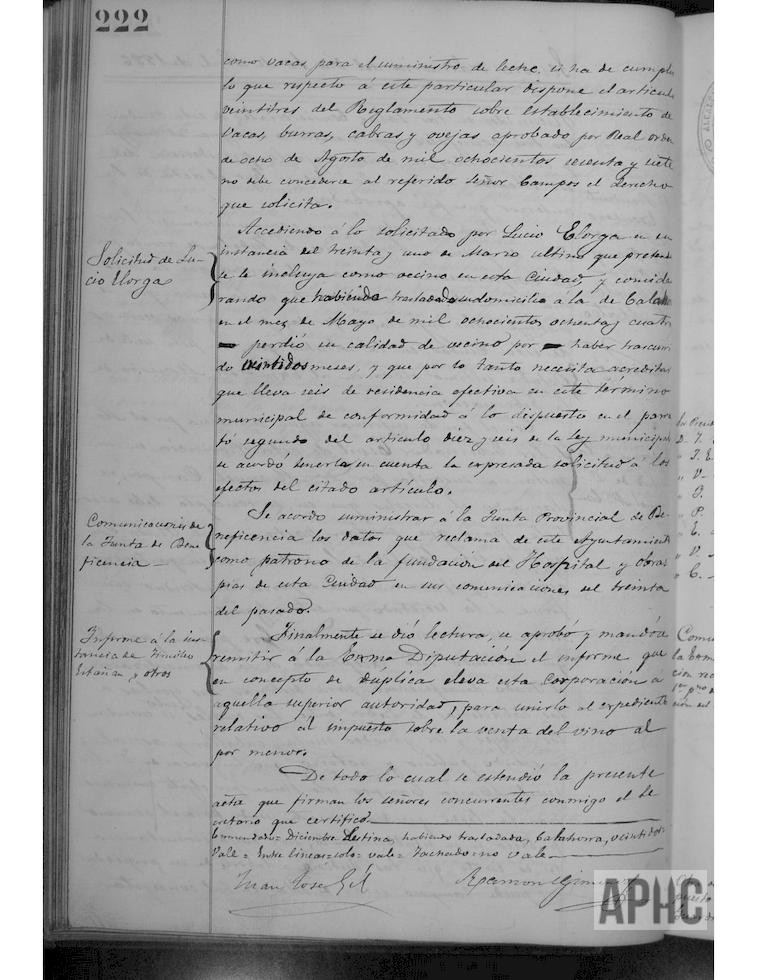 222
como vacas para el suministro de leche, se ha de cumplir
lo que respecto á este particular dispone el artículo
veintitres del Reglamento sobre establecimiento de
vacas, burras, cabras y ovejas aprobado por Real orden
de ocho de Agosto de mil ochocientos sesenta y siete
no debe concederse al referido Señor Campos el derecho
que solicita.
Solicitud de Lu-
cio Elorga
Accediendo á lo solicitado por Lucio Elorga en su
instancia del treinta y uno de Marzo ultimo que pretende
se le incluya como vecino en esta Ciudad, y conside
rando que habiendo trasladado su domicilio á la de Calaho
en el mes de Mayo de mil ochocientos ochenta y cuatro
perdió su calidad de vecino por haber trascurri
do veintidos meses, y que por lo tanto necesita acreditar
que lleva seis de residencia efectiva en este término
municipal de conformidad á lo dispuesto en el parra
fo segundo del articulo diez y seis de la Ley municipal
se acordó tenerla en cuenta la expresada solicitud á los
efectos del citado artículo.
Comunicaciones de
la Junta de Bene
ficencia
Se acordo suministrar á la Junta Provincial de Be-
neficencia los datos que reclama de este Ayuntamiento
como patrono de la fundación del Hospital y obras
pias de esta Ciudad en sus comunicaciones del treinta
del pasado.
Informe á la ins-
tancia de
y otros
Finalmente se dió lectura, se aprobó y mandó a
remitir á la Exma Diputación el informe que
en concepto de duplica eleva esta Corporación á
aquella superior autoridad, para unirlo al expediente
relativo al impuesto sobre la venta del vino al
por menor.
De todo lo cual se estendió la presente
acta que firman los señores concurrentes conmigo el Se
cretario que certifico.
Enmendado = Diciembre habiendo trasladada, Calahorra, veintidos =
Vale = Entre lineas = solo = vale = Tachado = no vale
Juan José Gil
Ramon Gimenez
APHC